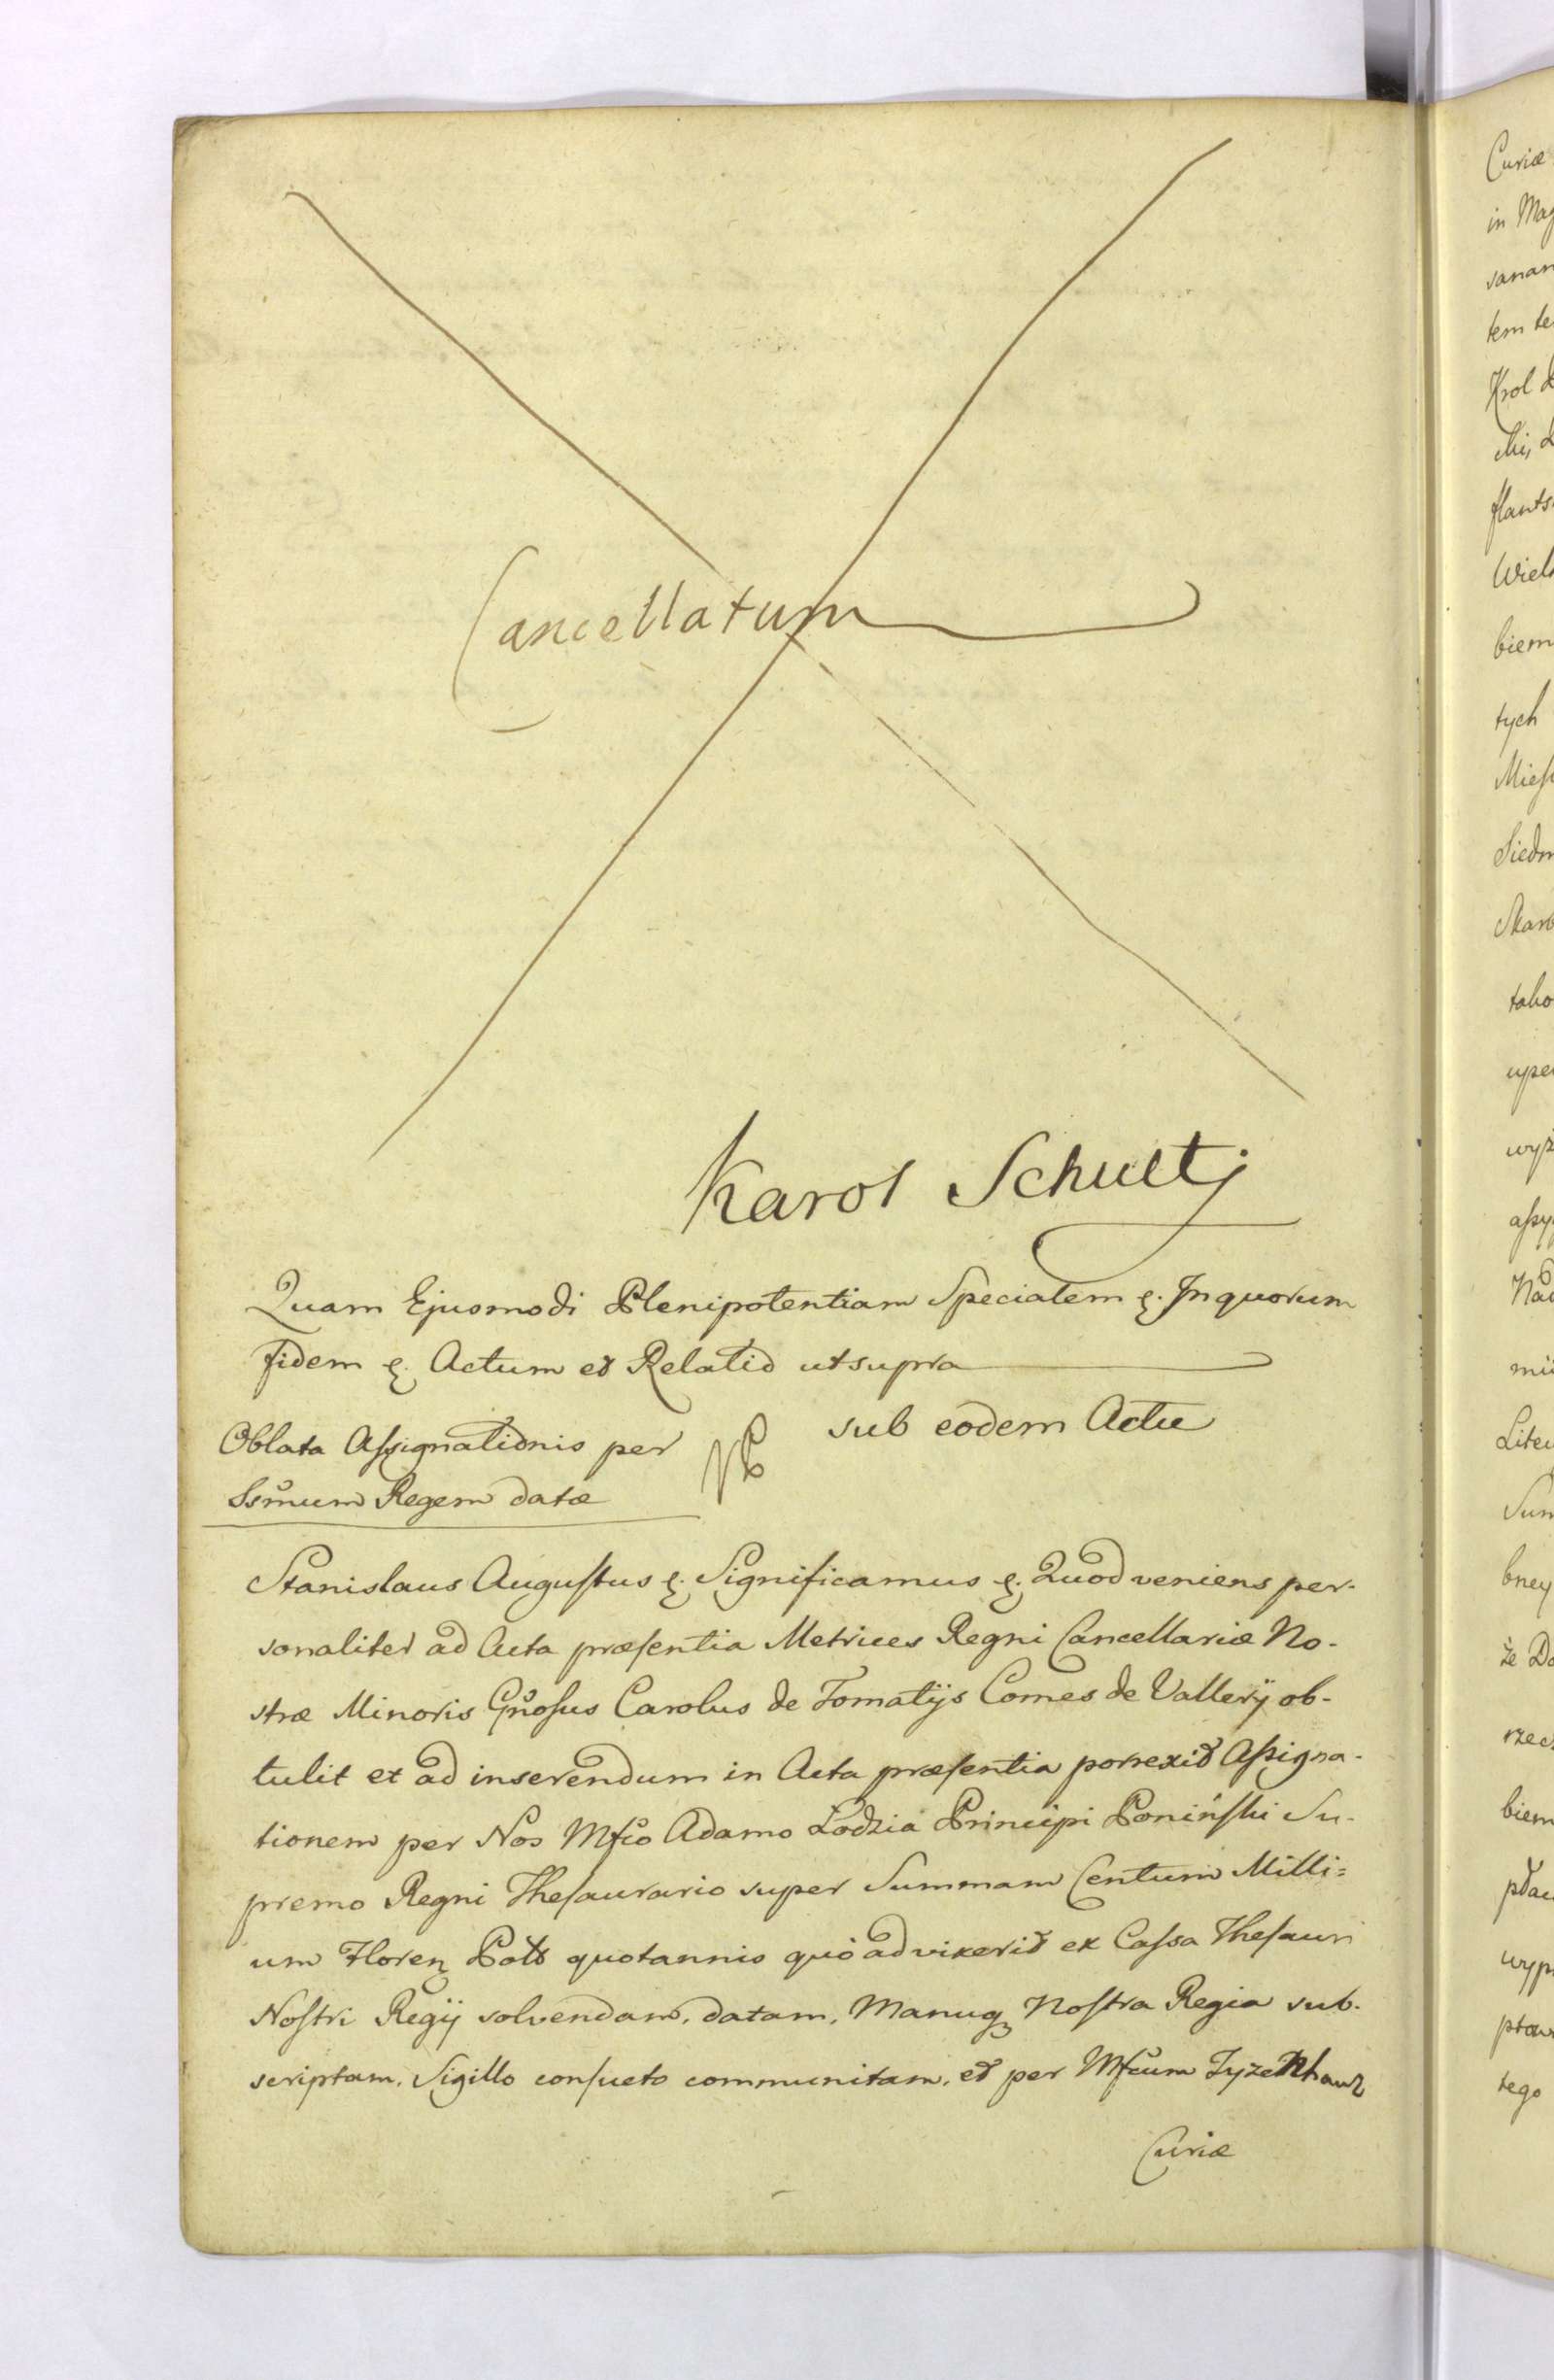 Cancellatum
Karol Schultz
Quam Ejusmodi Plenipotentiam Specialem &. In quorum
fidem &. Actum et Relatio ut supra
sub eodem Actu
Oblata Assignationis per
Ssmum Regem datæ
Stanislaus Augustus &. Significamus &. Quod veniens per-
sonaliter ad Acta præsentia Metrices Regni Cancellariæ No-
stræ Minoris Gnosus Carolus de Tomatijs Comes de Vallery ob-
tulit et ad inserendum in Acta præsentia porrexit Assigna-
tionem per Nos Mfco Adamo Lodzia Principi Poniński Su-
premo Regni Thesaurario super Summam Centum Milli=
um Floren Polls quotannis quò ad vixerit ex Cassa Thesauri
Nostri Regij solvendam, datam, Manuq3 Nostra Regia sub-
scriptam, Sigillo consueto communitam, et per Mfcum Tyzenhauz
Curiæ
Curiæ
in Mag
tem te
Krol
Wiel
biem
tych
Siedm
Skarb
tako
upe
Nad
Liter
Sum
bney
że Do
rzecz
biem
tego